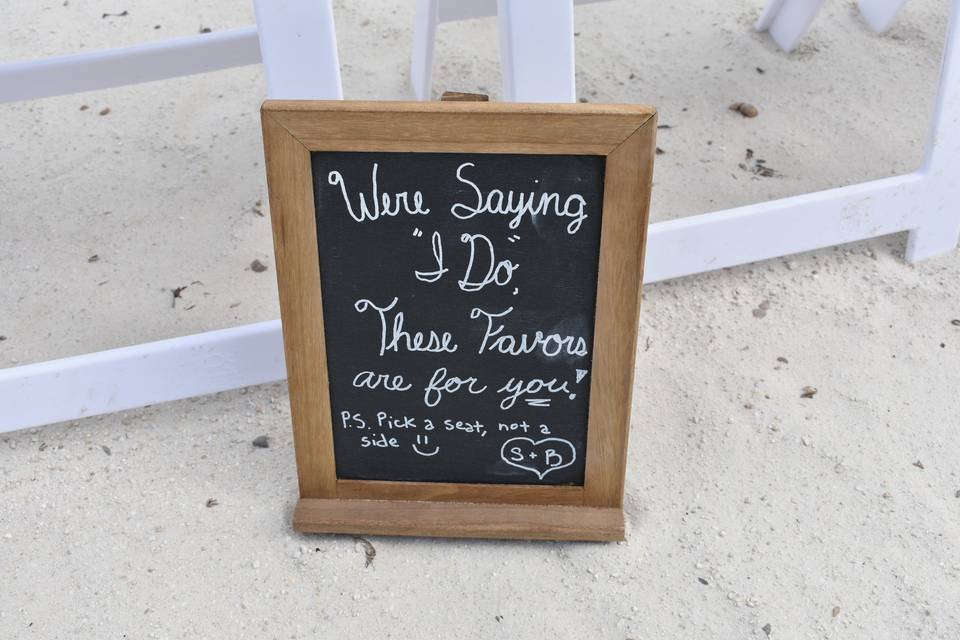 Were Saying
"I Do",
These Favors
are for you!
P.S. Pick a seat, not a
side
S + B